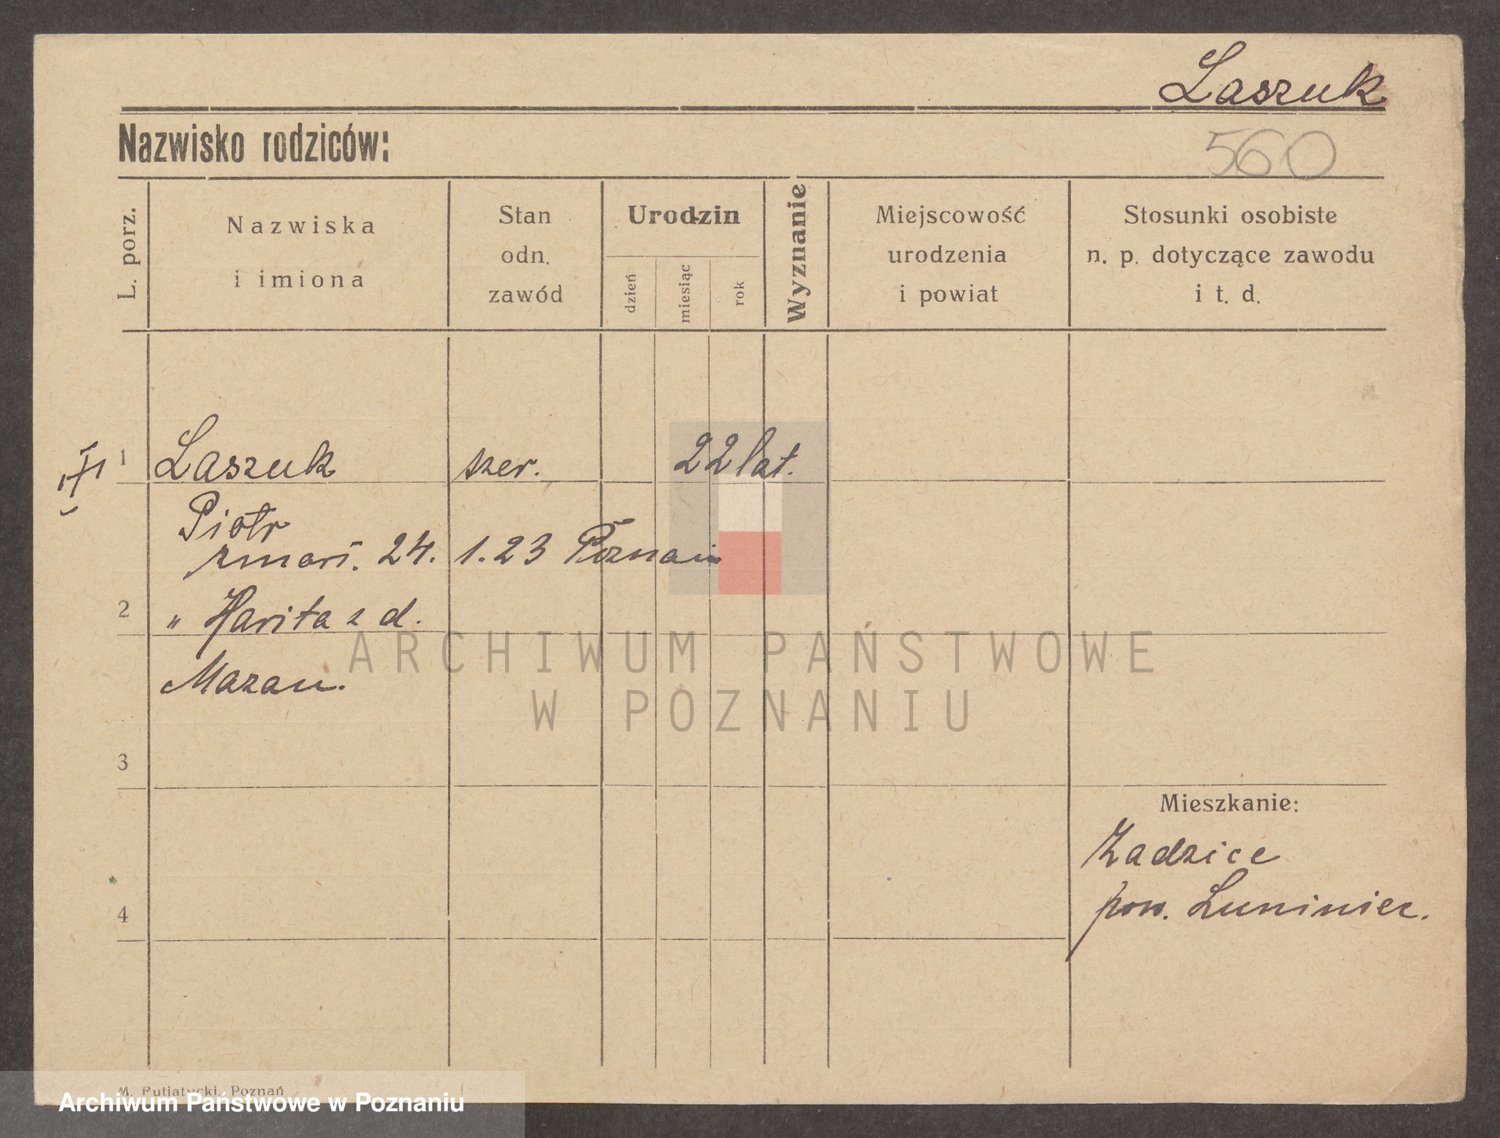 Laszuk
Nazwisko rodziców:
560
L. porz.
Nazwiska
i imiona
Stan
odn.
zawód
Urodzin
dzień
miesiąc
rok
Wyznanie
Miejscowość
urodzenia
i powiat
Stosunki osobiste
n. p. dotyczące zawodu
i t. d.
1 Laszuk szer. 22 lat.
Piotr
zmarł. 24. 1. 23 Poznań
2 " Harita z d.
Mazan.
ARCHIWUM PAŃSTWOWE
W POZNANIU
3
Mieszkanie:
Zadzice
4 pow. Luniniec.
M. Putiatycki, Poznań
Archiwum Państwowe w Poznaniu